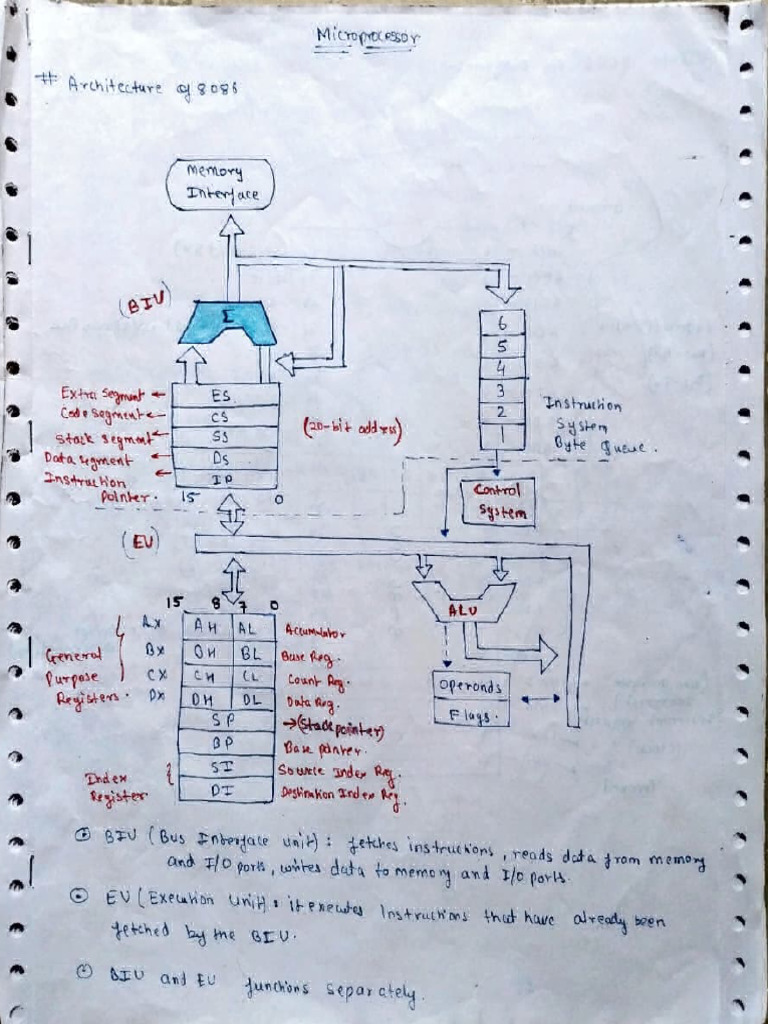 Microprocessor
# Architecture of 8086
Memory
Interface
(BIU)
Σ
6
5
4
3
2
1
Instruction
System
Byte Queue.
Extra Segment ←
Code Segment ←
Stack segment ←
Data segment ←
Instruction ←
Pointer.
ES
CS
SS
DS
IP
15 0
(20-bit address)
Control
System
(EU)
ALU
15 8 7 0
General
Purpose
Registers.
AX AH AL Accumulator
BX BH BL Base Reg.
CX CH CL Count Reg.
DX DH DL Data Reg.
SP →(Stack pointer)
BP Base pointer.
SI Source Index Reg.
DI Destination Index Reg.
Index
Register
Operands
Flags.
BIU (Bus Interface unit) : fetches instructions, reads data from memory
and I/O ports, writes data to memory and I/O ports.
EU (Execution Unit) : it executes Instructions that have already been
fetched by the BIU.
BIU and EU functions separately.